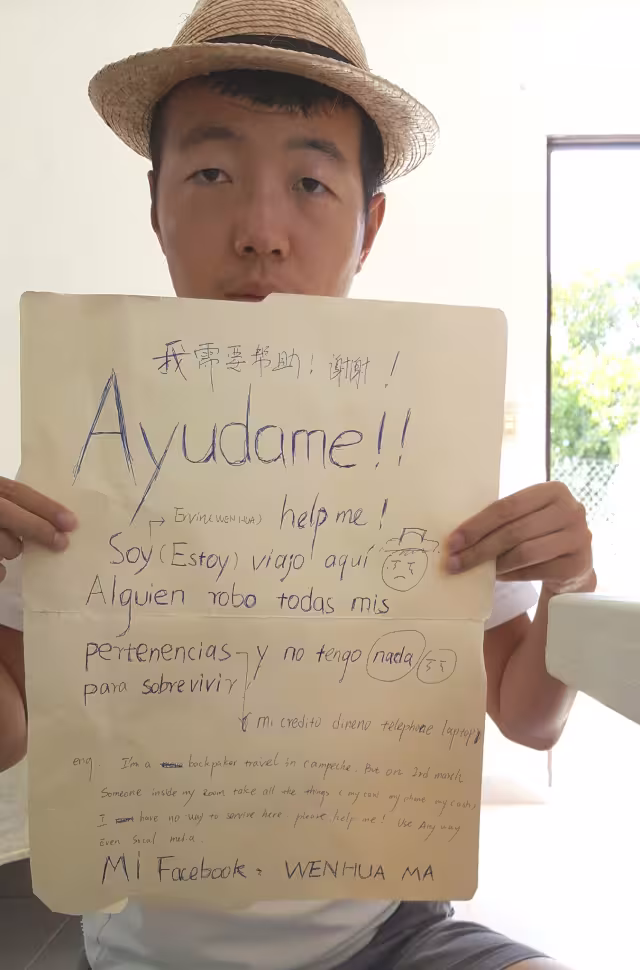 我需要帮助！谢谢！
Ayudame!!
Ervin(WENHUA) help me!
Soy (Estoy) viajo aquí
Alguien robo todas mis
pertenencias y no tengo nada
para sobrevivir
mi credito dinero telephone laptop
eng. I'm a backpaker travel in campeche. But on 3rd march
Someone inside my room take all the things (my card my phone my cash)
I have no way to survive here. please help me! Use Any way
Even Social media.
Mi Facebook: WENHUA MA